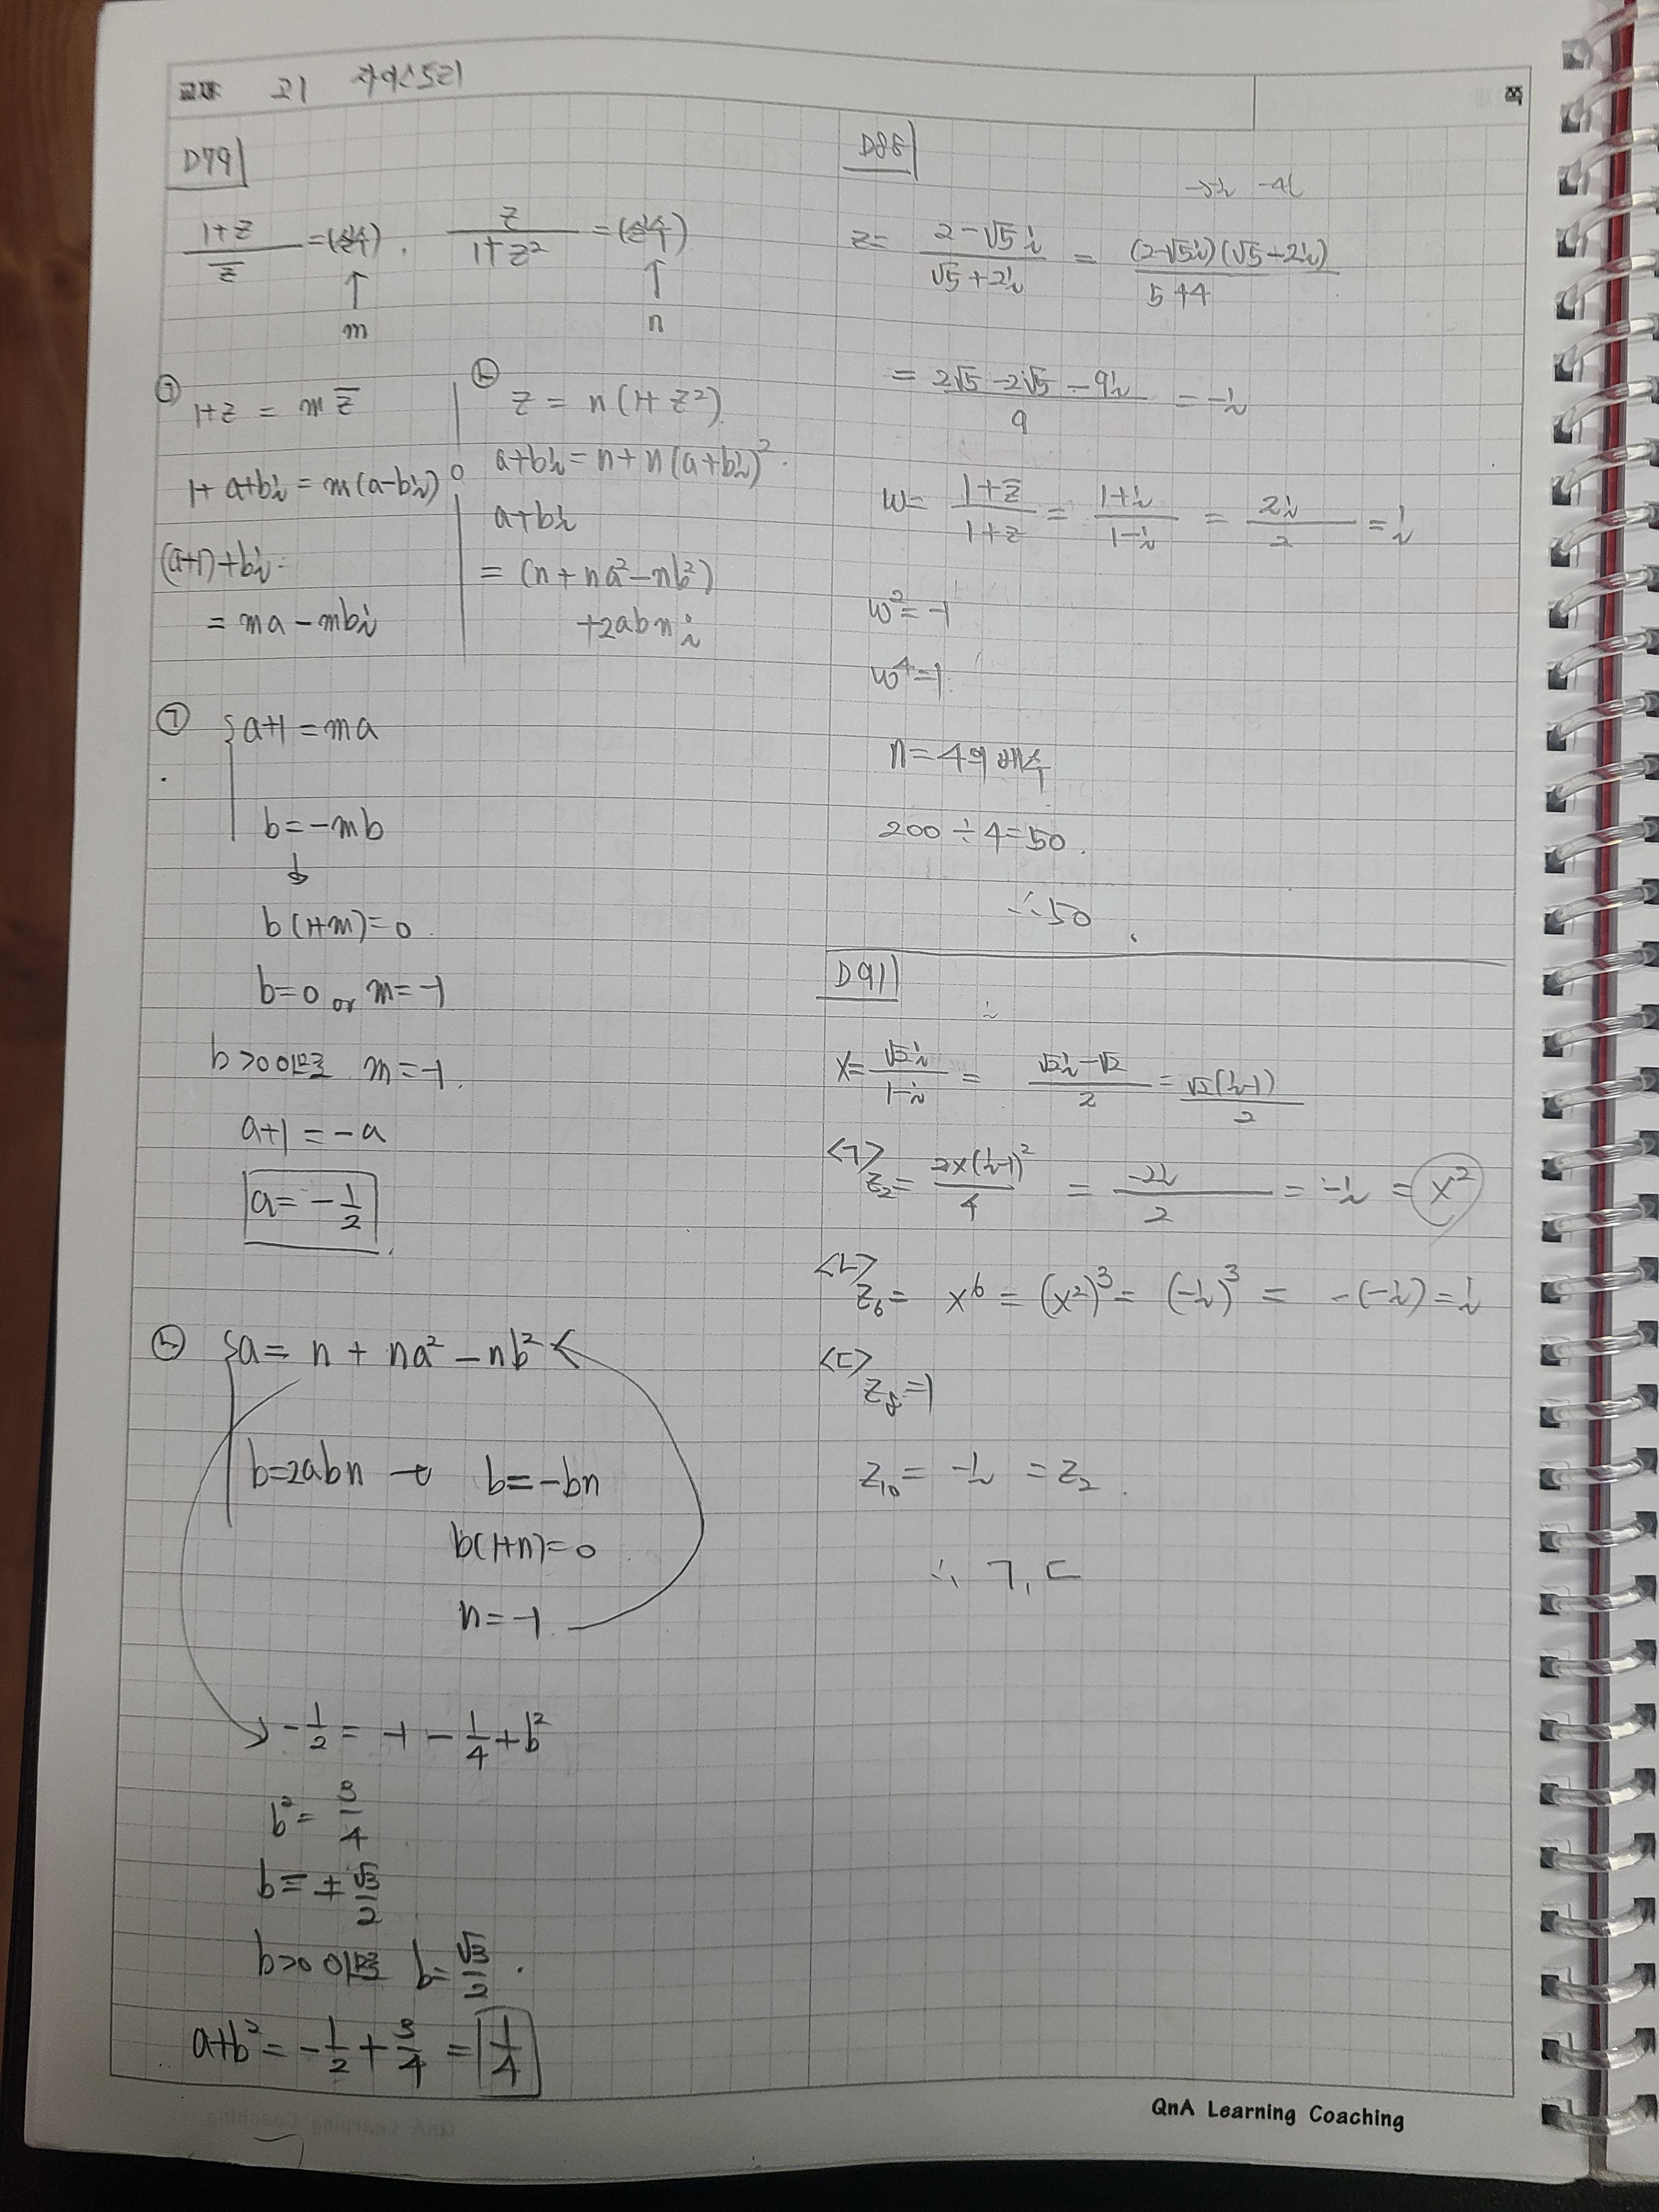 교재 고1 자이스토리 쪽
D79
(1+z)/z̅ = (실수), z/(1+z²) = (실수)
↑ ↑
m n
㉠ 1+z = m z̅
1+a+bi = m(a-bi)
(a+1)+bi
= ma - mbi
㉡ z = n(1+z²)
a+bi = n+n(a+bi)²
a+bi
= (n+na²-nb²)
+2abn i
㉠ { a+1 = ma
b = -mb
↓
b(1+m)=0
b=0 or m=-1
b>0이므로 m=-1.
a+1 = -a
a = -1/2
㉡ { a = n + na² - nb² ←
b=2abn → b=-bn
b(1+n)=0
n=-1
→ -1/2 = -1 - 1/4 + b²
b² = 3/4
b = ±√3/2
b>0이므로 b=√3/2.
a+b² = -1/2 + 3/4 = 1/4
D88
-5i -4i
z = (2-√5i)/(√5+2i) = (2-√5i)(√5-2i)/(5+4)
= (2√5-2√5-9i)/9 = -i
w = (1+z̅)/(1+z) = (1+i)/(1-i) = 2i/2 = i
w²=-1
w⁴=1
n=4의 배수
200÷4=50.
∴50
D91
x = √2i/(1-i) = (√2i-√2)/2 = √2(i-1)/2
<ㄱ> z₂ = 2×(i-1)²/4 = -2i/2 = -i = x²
<ㄴ> z₆ = x⁶ = (x²)³ = (-i)³ = -(-i) = i
<ㄷ>
z₈=1
z₁₀ = -i = z₂
∴ ㄱ, ㄷ
QnA Learning Coaching